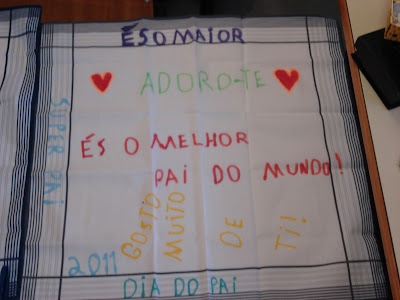 ÉS O MAIOR
ADORO-TE
SUPER PAI
ÉS O MELHOR
PAI DO MUNDO!
GOSTO
MUITO
DE
TI!
2011
DIA DO PAI